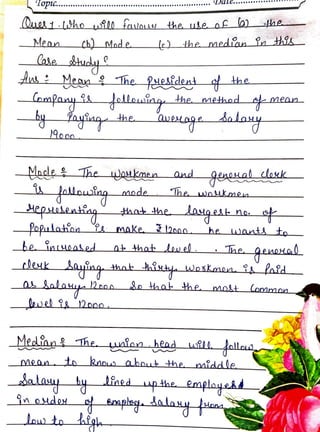 Topic........................................ Date....................
Ques 1. Who will favour the use of (a) the
Mean (b) Mode (c) the median in this
Case study?
Ans: Mean: The President of the
Company is following the method of mean
by Paying the average Salary
19000.
Mode: The workmen and general clerk
is following mode. The workmen
representing that the largest no. of
Population is make ₹12000. he wants to
be increased at that level. The general
clerk Saying that thirty workmen is Paid
as Salary 12000 So that the most Common
level is 12000.
Median: The union head will follow
mean. to know about the middle
Salary by lined up the employees
in order of employ. Salary from
low to high